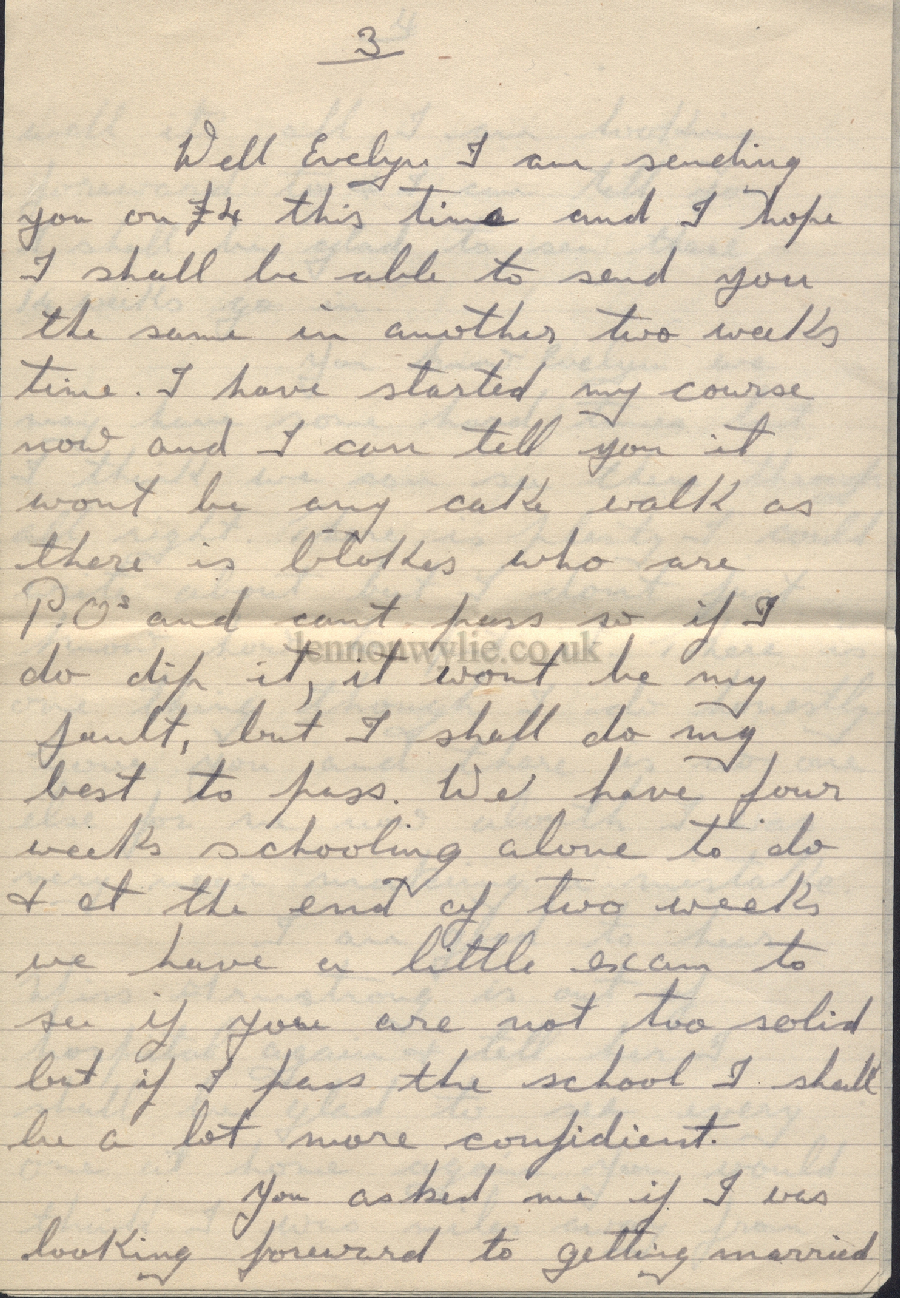 3
Well Evelyn I am sending
you on £4 this time and I hope
I shall be able to send you
the same in another two weeks
time. I have started my course
now and I can tell you it
wont be any cake walk as
there is blokes who are
P.Os and cant pass so if I
lennonwylie.co.uk
do dip it, it wont be my
fault, but I shall do my
best to pass. We have four
weeks schooling alone to do
& at the end of two weeks
we have a little exam to
see if you are not too solid
but if I pass the school I shall
be a lot more confidient.
You asked me if I was
looking foreward to getting married